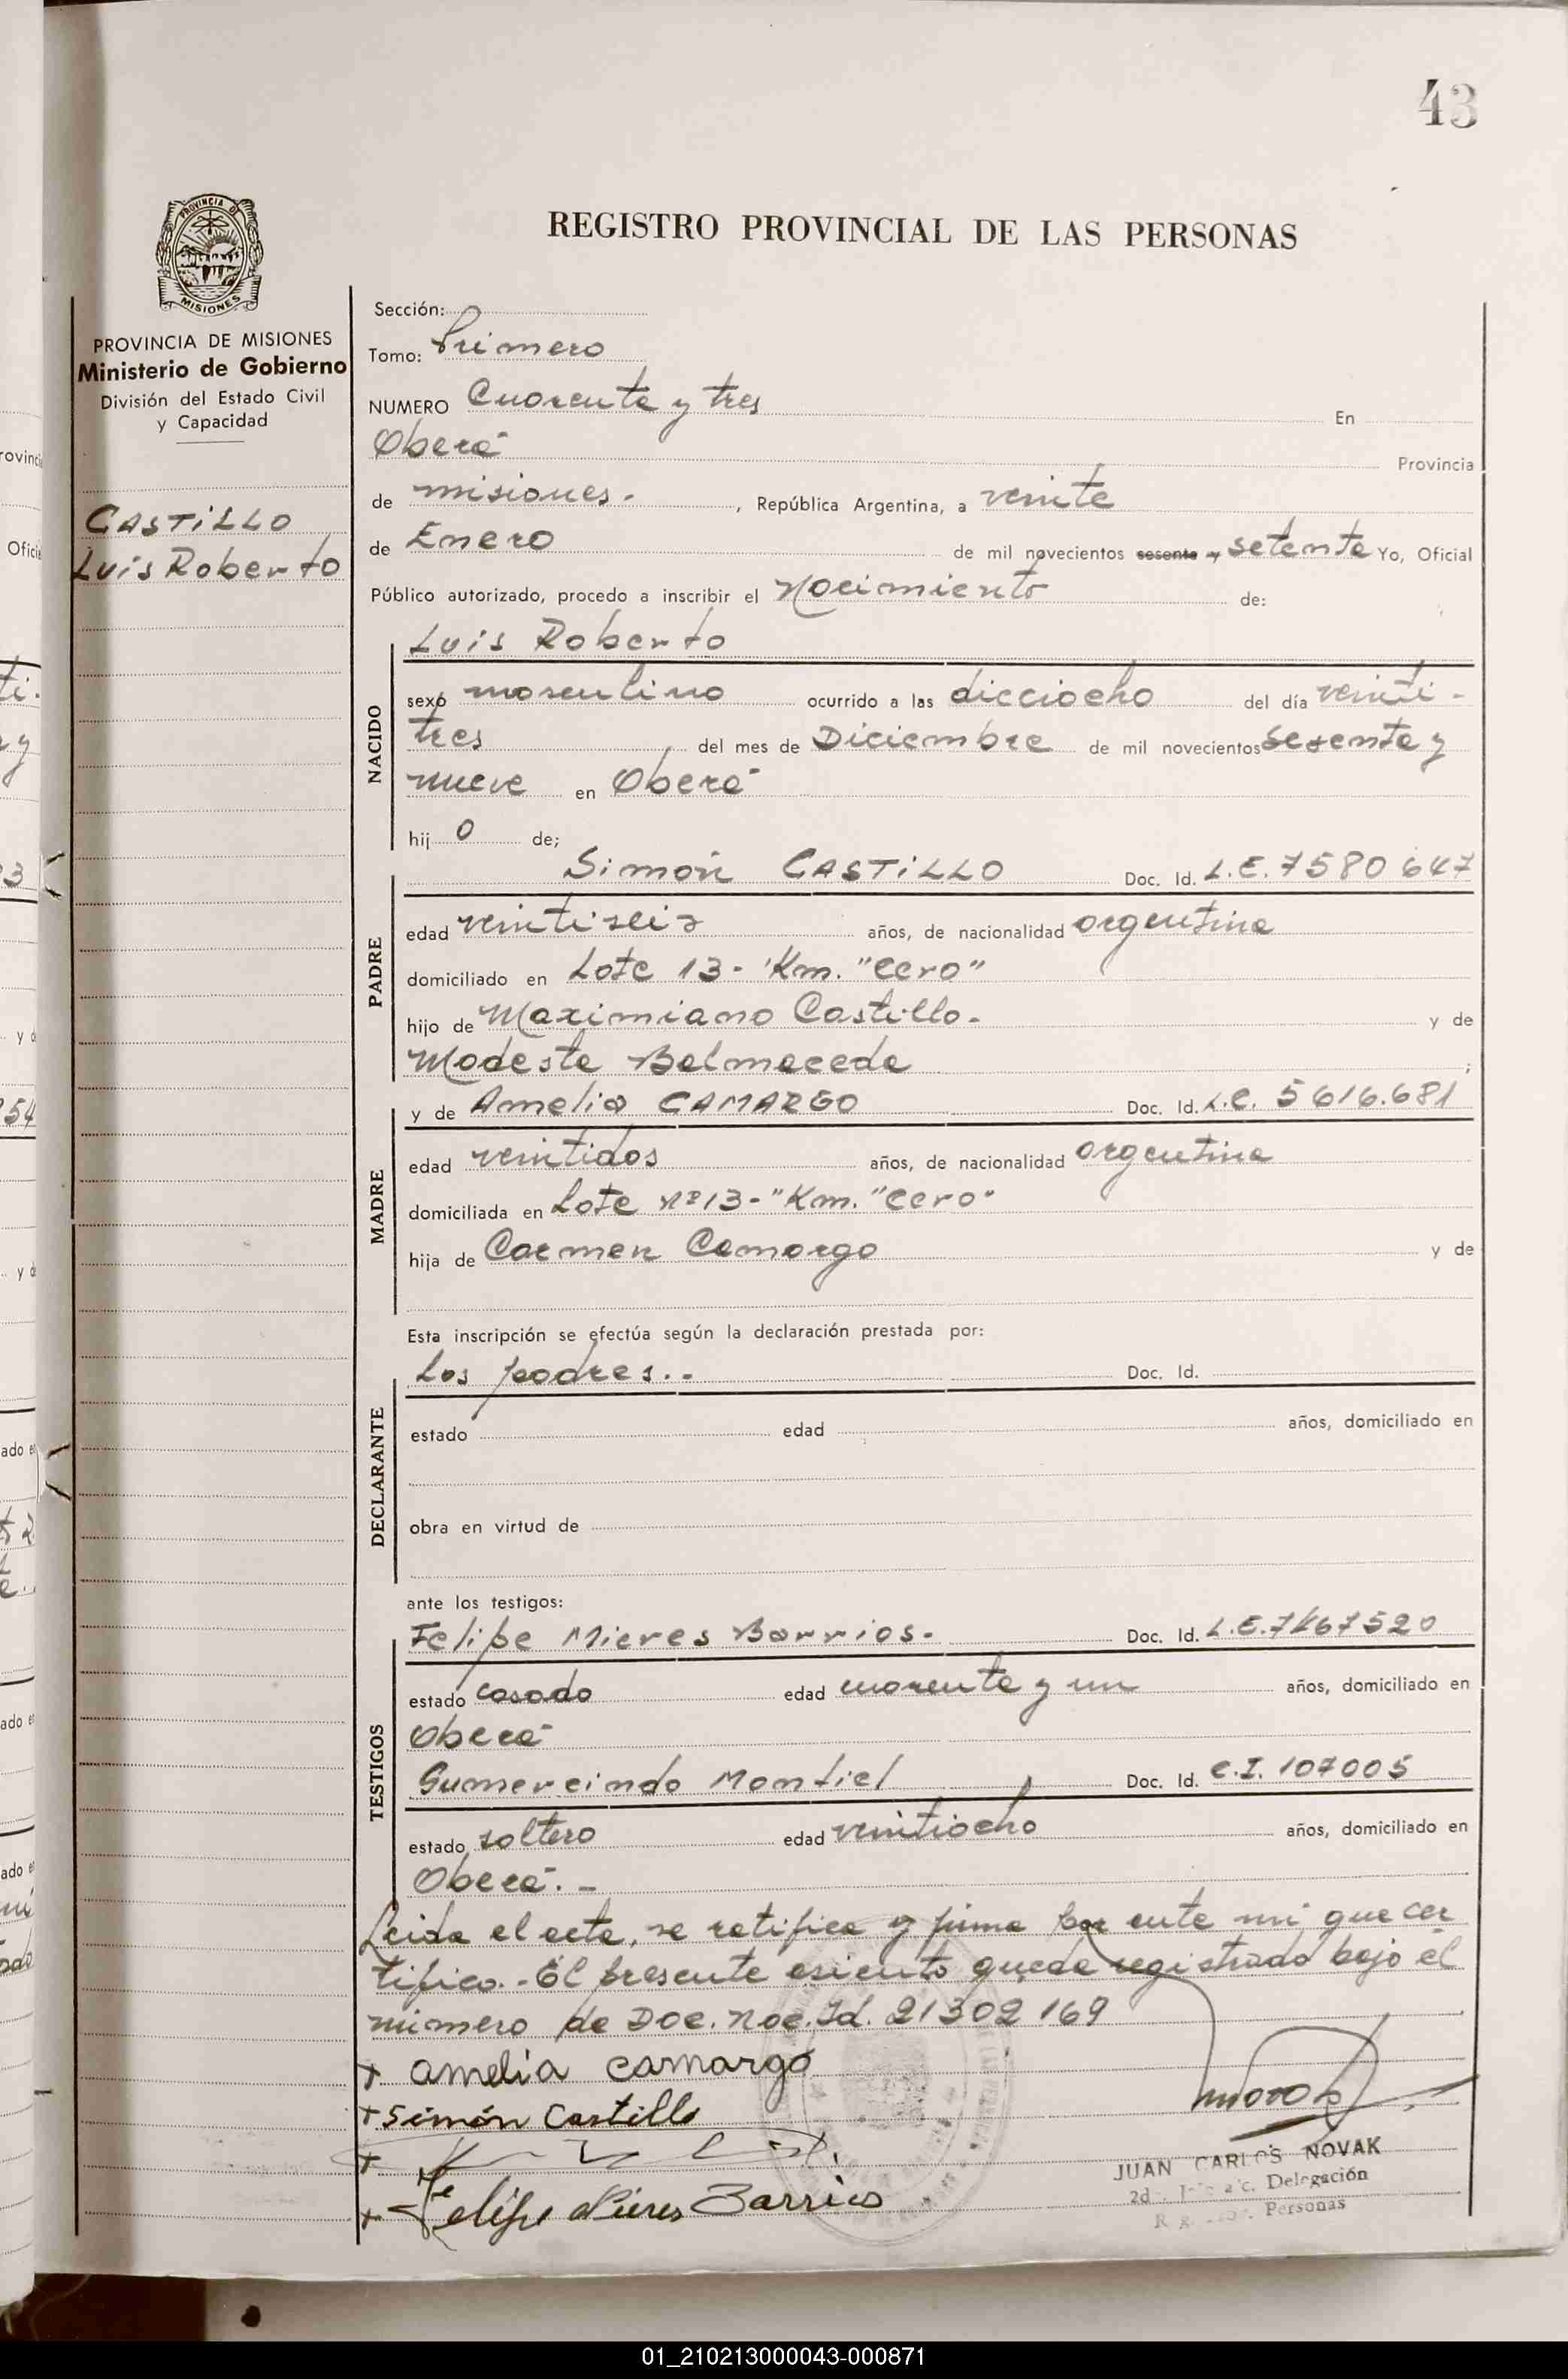 43
PROVINCIA DE
MISIONES
REGISTRO PROVINCIAL DE LAS PERSONAS
PROVINCIA DE MISIONES
Ministerio de Gobierno
División del Estado Civil
y Capacidad
CASTILLO
Luis Roberto
Sección:
Tomo: Primero
NUMERO Cuarenta y tres En
Oberá Provincia
de misiones.-, República Argentina, a veinte
de Enero de mil novecientos sesenta y setenta Yo, Oficial
Público autorizado, procedo a inscribir el Nacimiento de:
NACIDO
Luis Roberto
sexo masculino ocurrido a las dieciocho del día veinti-
tres del mes de Diciembre de mil novecientos sesenta y
nueve en Oberá
hij o de;
PADRE
Simón CASTILLO Doc. Id. L.E. 7580647
edad veintiseis años, de nacionalidad argentina
domiciliado en Lote 13- Km. "Cero"
hijo de Maximiano Castillo- y de
Modesta Balmaceda ;
MADRE
y de Amelia CAMARGO Doc. Id. L.C. 5616.681
edad veintidos años, de nacionalidad argentina
domiciliada en Lote nº13-"Km. "Cero"
hija de Carmen Camargo y de
Esta inscripción se efectúa según la declaración prestada por:
DECLARANTE
Los padres.- Doc. Id.
estado edad años, domiciliado en
obra en virtud de
ante los testigos:
TESTIGOS
Felipe Mieres Barrios- Doc. Id. L.E. 7467520
estado casado edad cuarenta y un años, domiciliado en
Oberá
Gumercindo Montiel Doc. Id. C.I. 107005
estado soltero edad veintiocho años, domiciliado en
Oberá.-
Leida el acta, se ratifica y firma por ante mi que cer
tifico.-El presente asiento queda registrado bajo el
número de Doc. Nac. Id. 21302169
+ amelia camargo
+ Simón Castillo
+
+ Felipe Mieres Barrios
JUAN CARLOS NOVAK
Delegación
Personas
01_210213000043-000871